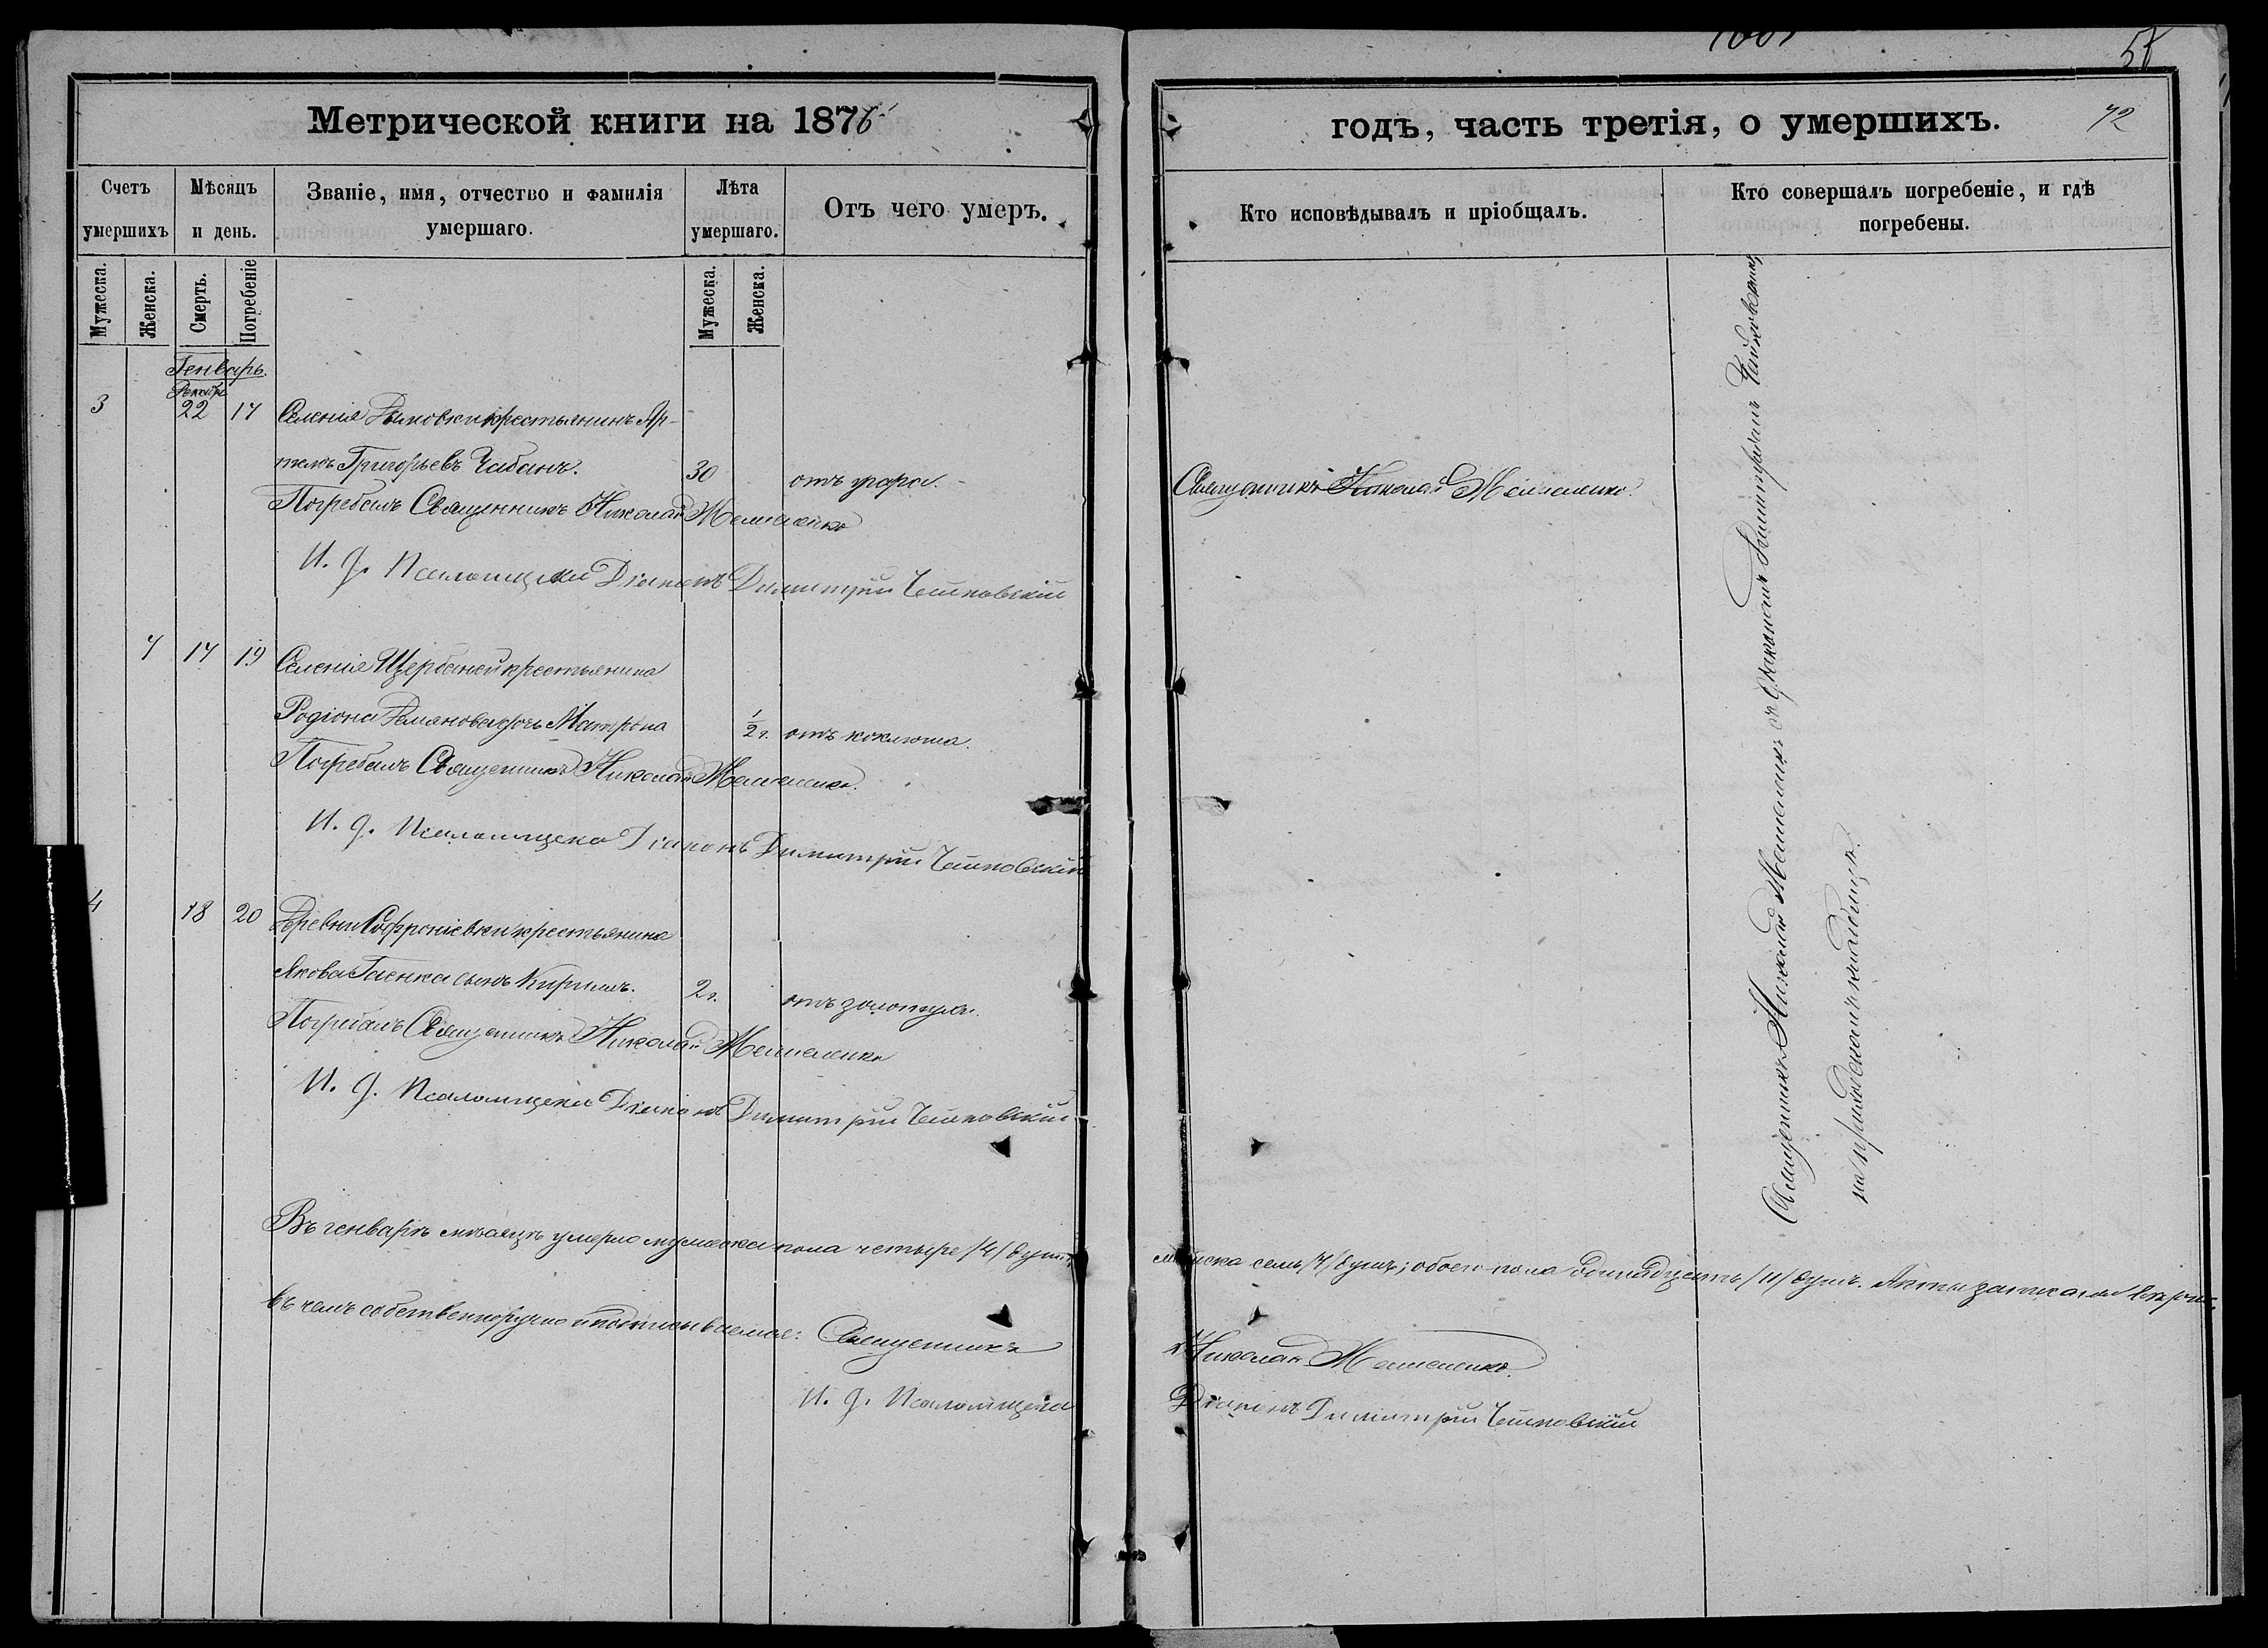 Метрической книги на 1876
Счетъ умершихъ
Мѣсяцъ и день.
Званіе, имя, отчество и фамилія умершаго.
Лѣта умершаго.
Отъ чего умеръ.
Мужеска.
Женска.
Смерть.
Погребеніе
Мужеска.
Женска.
Генварь.
Декабрь
3 22 17 Селенія крестьянинъ Ар-
темъ Григорьевъ Чабанъ. 30 отъ удара.
Погребалъ Священникъ Николай
И. д. Псаломщика Діаконъ Димитрій Чайковскій
7 17 19 Селенія Щербаней крестьянина
Родіона Демянова дочь Матрона 1/2 г. отъ коклюша.
Погребалъ Священникъ Николай
И. д. Псаломщика Діаконъ Димитрій Чайковскій
4 18 20 Деревни Софроніевки крестьянина
Якова Гаенка сынъ Кирилъ. 2 г. отъ золотухи.
Погребалъ Священникъ Николай
И. д. Псаломщика Діаконъ Димитрій Чайковскій
Въ генварѣ мѣсяцѣ умерло мужеска пола четыре /4/ души,
въ чемъ собственноручно и подписываемся: Священникъ
И. д. Псаломщика
72
годъ, часть третія, о умершихъ.
Кто исповѣдывалъ и пріобщалъ.
Кто совершалъ погребеніе, и гдѣ погребены.
Священникъ Николай
Священникъ Николай съ Діакономъ Димитріемъ Чайковскимъ
на приходскомъ кладбищѣ.
женска семь /7/ душъ; обоего пола одинадцать /11/ душъ. Акты записаны вѣрно
Николай
Діаконъ Димитрій Чайковскій